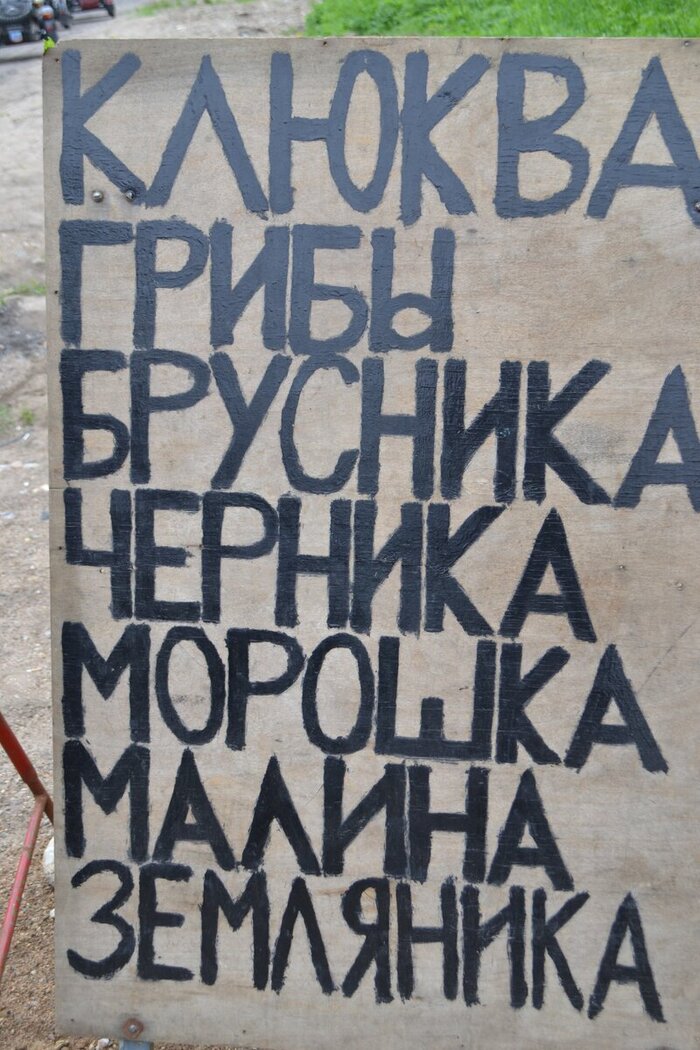 КЛЮКВА
ГРИБЫ
БРУСНИКА
ЧЕРНИКА
МОРОШКА
МАЛИНА
ЗЕМЛЯНИКА